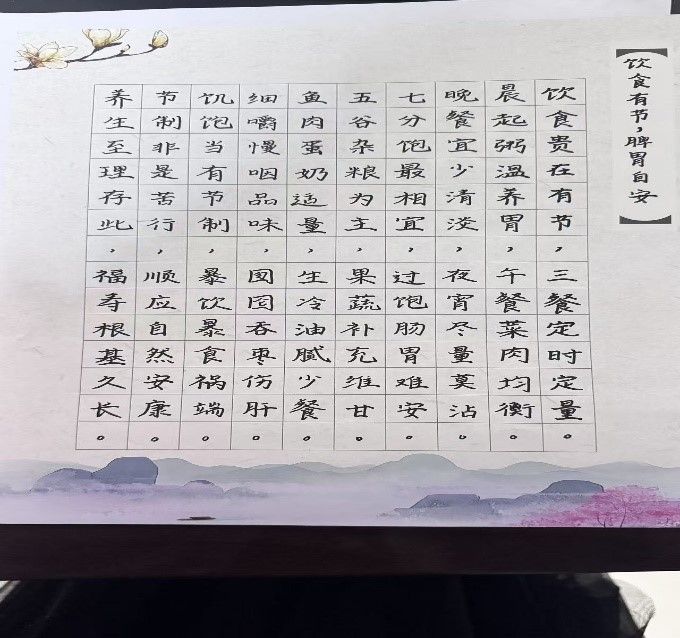 【饮食有节,脾胃自安】
饮食贵在有节,三餐定时定量。
晨起粥温养胃,午餐菜肉均衡。
晚餐宜少清淡,夜宵尽量莫沾。
七分饱最相宜,过饱肠胃难安。
五谷杂粮为主,果蔬补充维甘。
鱼肉蛋奶适量,生冷油腻少餐。
细嚼慢咽品味,囫囵吞枣伤肝。
饥饱当有节制,暴饮暴食祸端。
节制非是苦行,顺应自然安康。
养生至理存此,福寿根基久长。